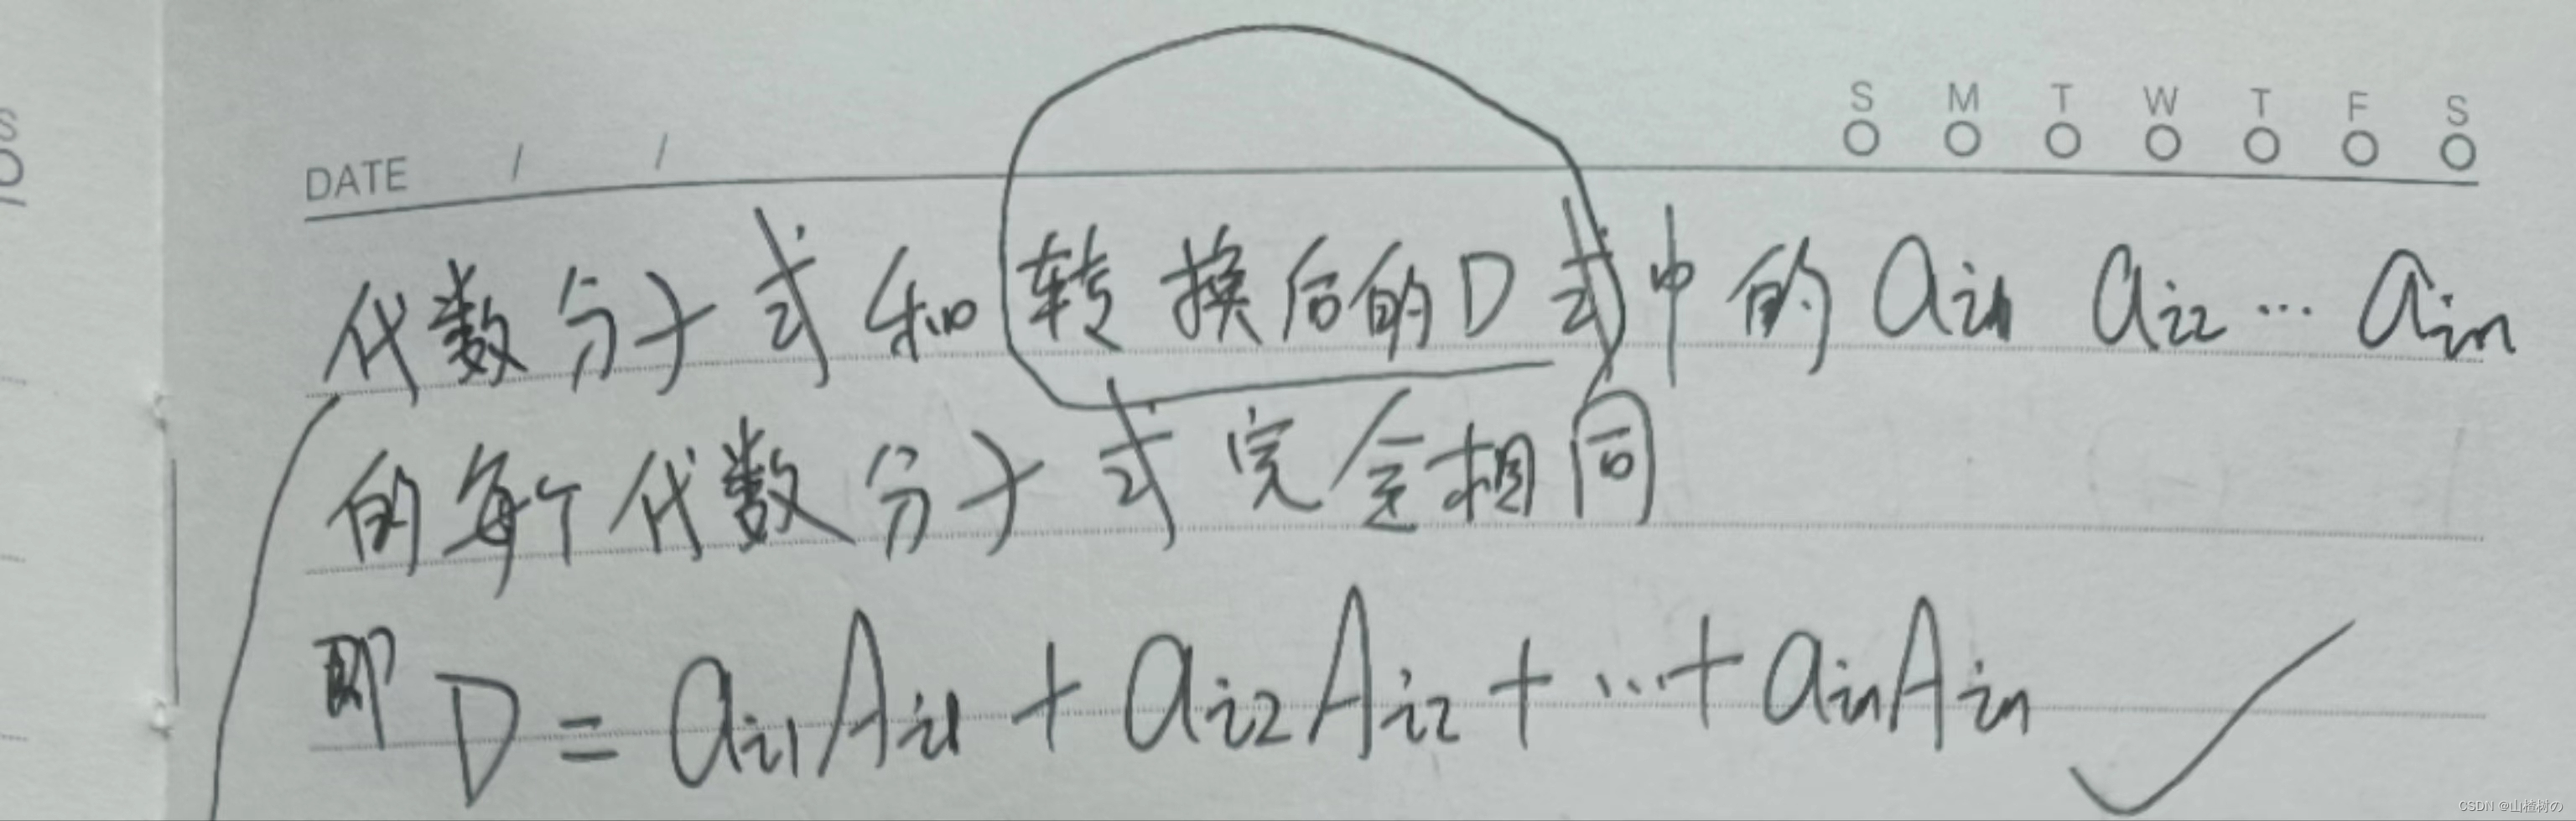 S
DATE / / S M T W T F S
代数分子式和转换后的D式中的 ai1 ai2 … ain
的每个代数分子式完全相同
即 D = ai1Ai1 + ai2Ai2 + … + ainAin ✓
CSDN @山楂树の